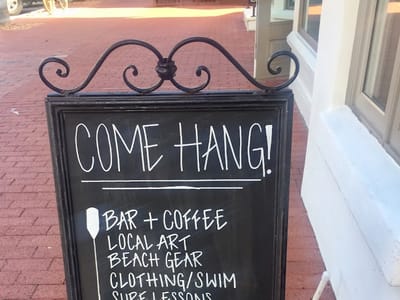 COME HANG!
BAR + COFFEE
LOCAL ART
BEACH GEAR
CLOTHING/SWIM
SURF LESSONS